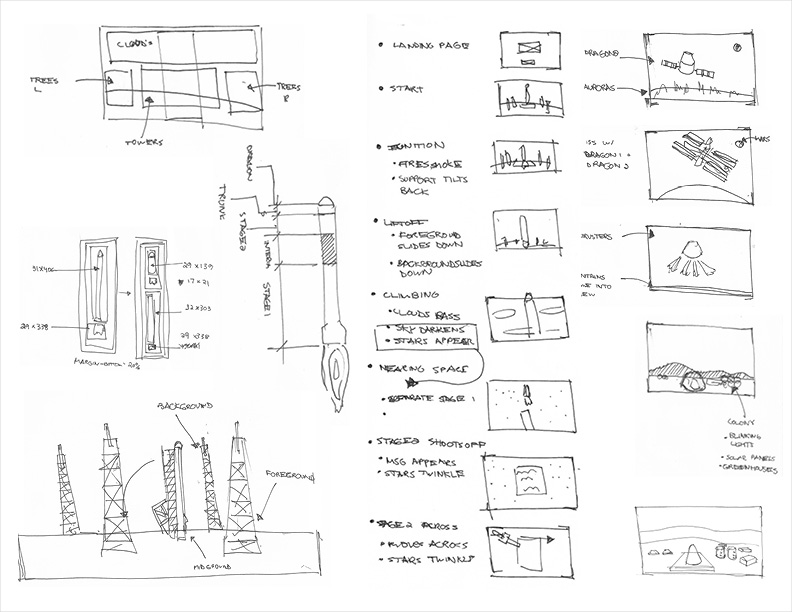 CLOUDS
TREES
L
TREES
R
TOWERS
DRAGON
TRUNK
STAGE 2
INTERM
STAGE 1
29 x 139
17 x 21
29 x 338
BACKGROUND
FOREGROUND
MIDGROUND
• LANDING PAGE
• START
• IGNITION
• FIRE SMOKE
• SUPPORT TILTS
BACK
• LIFTOFF
• FOREGROUND
SLIDES DOWN
• BACKGROUND SLIDES
DOWN
• CLIMBING
• CLOUDS PASS
• SKY DARKENS
• STARS APPEAR
• NEARING SPACE
• SEPARATE STAGE 1
•
• STAGE 2 SHOOTS OFF
• MSG APPEARS
• STARS TWINKLE
• STAGE 2 ACROSS
ACROSS
• STARS TWINKLE
DRAGON2
AURORAS
ISS W/
DRAGON 1 +
DRAGON 2
MARS
COLONY
• BLINKING
LIGHTS
• SOLAR PANELS
• GREENHOUSES